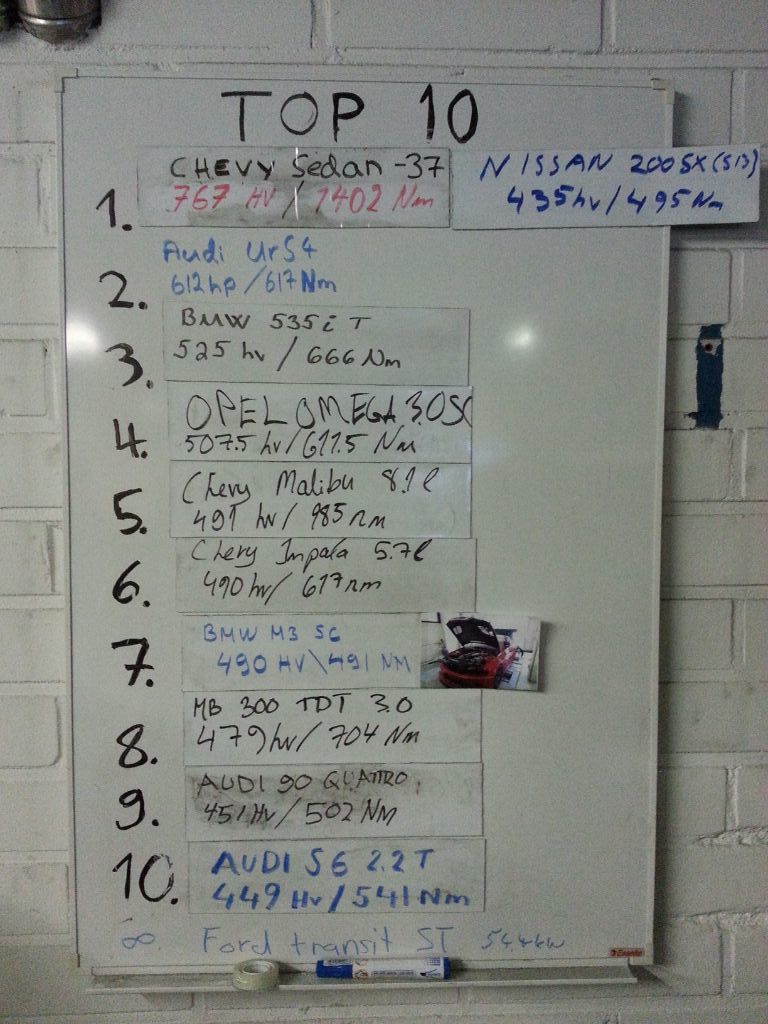 TOP 10
1. CHEVY Sedan -37
767 HV / 1402 Nm
NISSAN 200SX (S13)
435hv / 495Nm
2. Audi UrS4
612hp / 617Nm
3. BMW 535i T
525 hv / 666 Nm
4. OPEL OMEGA 3.0SC
507.5 hv / 611.5 Nm
5. Chevy Malibu 8.1 l
491 hv / 985 nm
6. Chevy Impala 5.7l
490hv / 617nm
7. BMW M3 SC
490 HV\491 NM
8. MB 300 TDT 3.0
479hv / 704 Nm
9. AUDI 90 QUATTRO
451Hv / 502 NM
10. AUDI S6 2.2T
449 Hv / 541Nm
∞. Ford transit ST 54.4kw